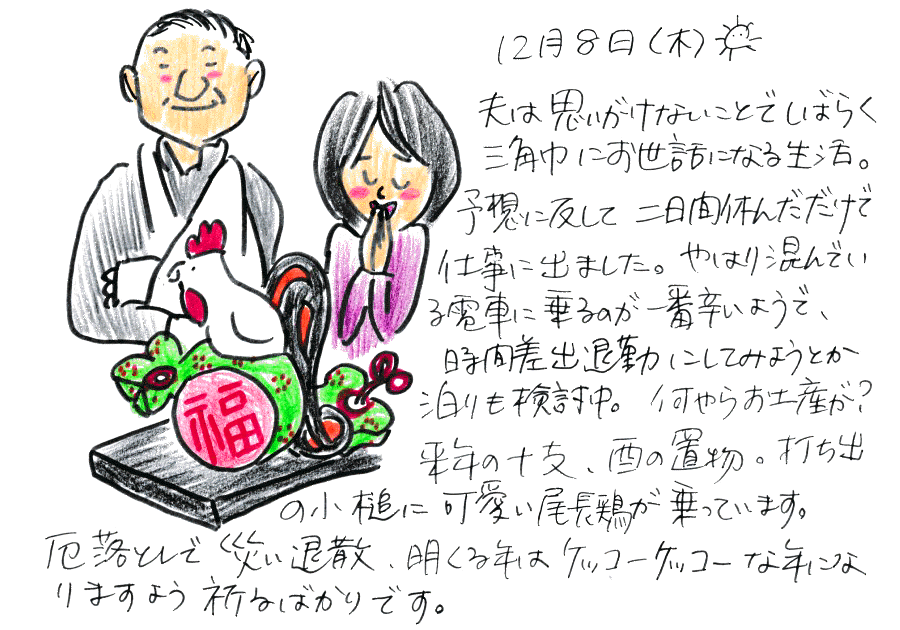 12月8日(木)
夫は思いがけないことでしばらく
三角巾にお世話になる生活。
予想に反して二日間休んだだけで
仕事に出ました。やはり混んでい
る電車に乗るのが一番辛いようで、
時間差出退勤にしてみようとか
泊りも検討中。何やらお土産が?
来年の十支、酉の置物。打ち出
の小槌に可愛い尾長鶏が乗っています。
厄落としで災い退散、明くる年はケッコーケッコーな年にな
りますよう祈るばかりです。
福